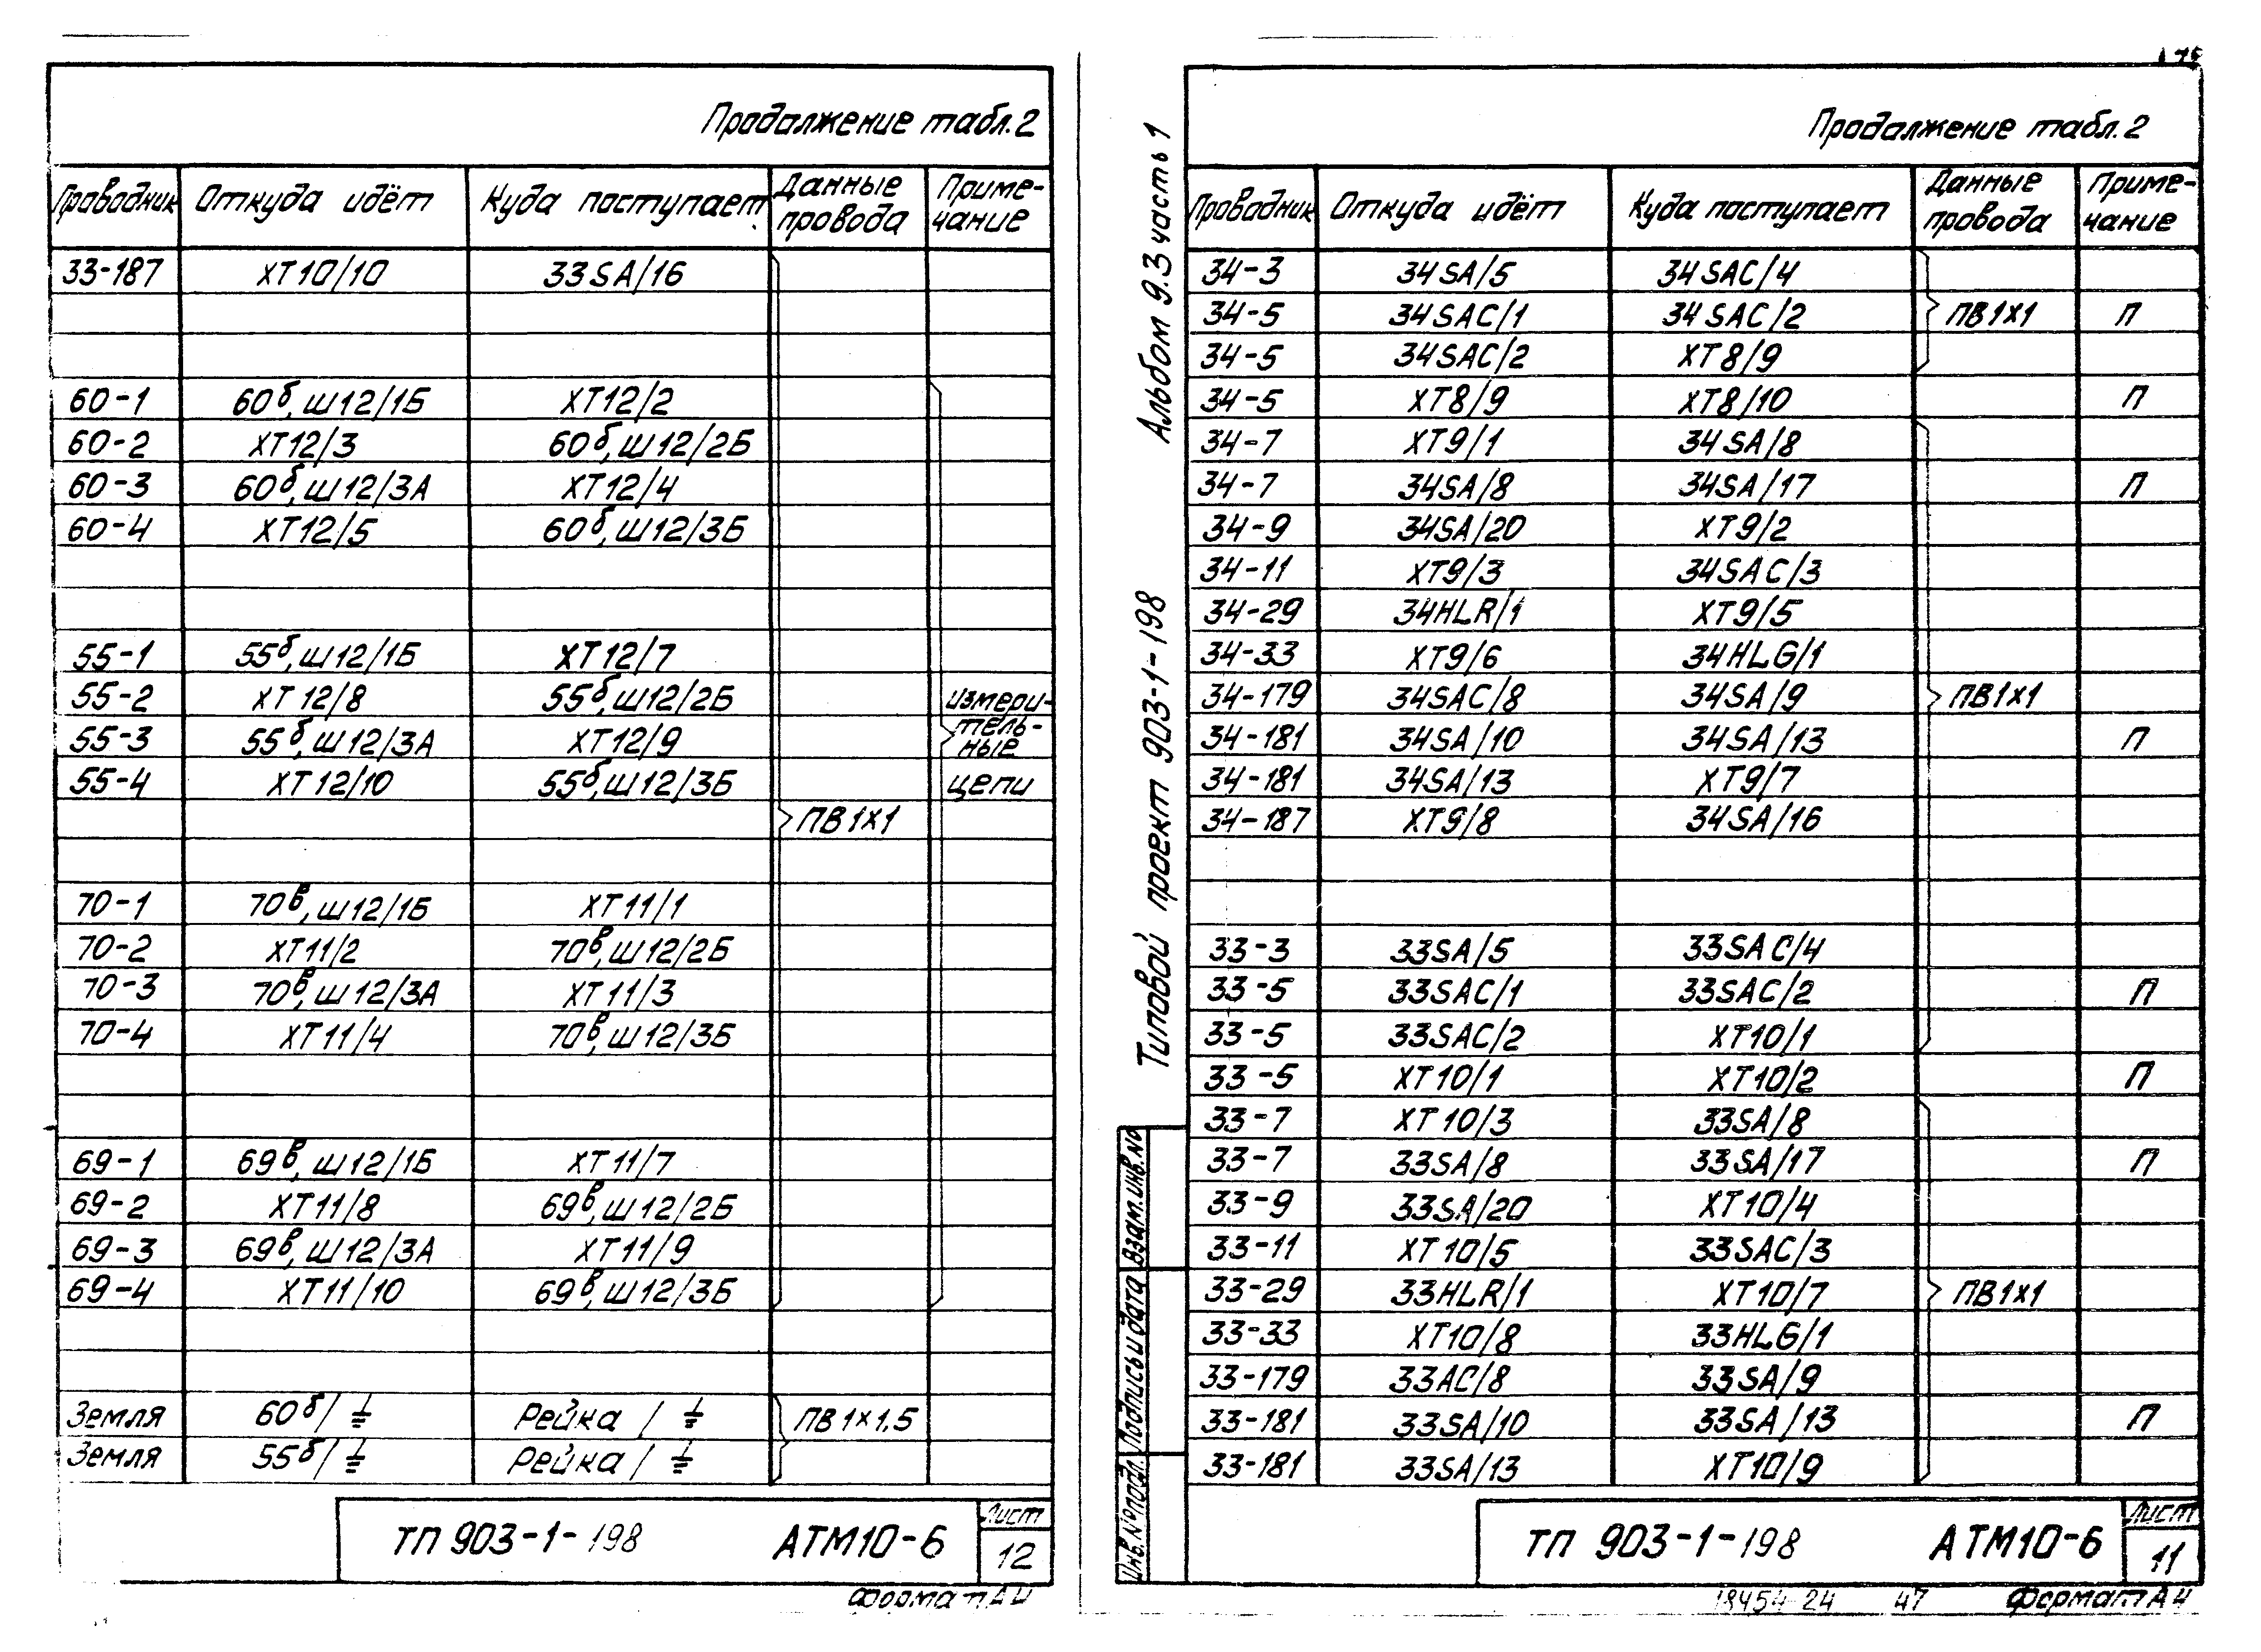 Продолжение табл.2
Проводник Откуда идёт Куда поступает Данные провода Приме-чание
33-187 ХТ10/10 33SA/16
60-1 60б,Ш12/1Б ХТ12/2
60-2 ХТ12/3 60б,Ш12/2Б
60-3 60б,Ш12/3А ХТ12/4
60-4 ХТ12/5 60б,Ш12/3Б
55-1 55б,Ш12/1Б ХТ12/7
55-2 ХТ12/8 55б,Ш12/2Б измери-
тель-
55-3 55б,Ш12/3А ХТ12/9 ные
55-4 ХТ12/10 55б,Ш12/3Б цепи
ПВ1х1
70-1 70в,Ш12/1Б ХТ11/1
70-2 ХТ11/2 70в,Ш12/2Б
70-3 70в,Ш12/3А ХТ11/3
70-4 ХТ11/4 70в,Ш12/3Б
69-1 69в,Ш12/1Б ХТ11/7
69-2 ХТ11/8 69в,Ш12/2Б
69-3 69в,Ш12/3А ХТ11/9
69-4 ХТ11/10 69в,Ш12/3Б
Земля 60б/⏚ Рейка/⏚ ПВ1х1,5
Земля 55б/⏚ Рейка/⏚
ТП 903-1-198 АТМ10-6 Лист
12
Формат А4
Альбом 9.3 часть 1
Типовой проект 903-1-198
Взам.инв.№
Подпись и дата
Инв.№подл.
Продолжение табл.2
Проводник Откуда идёт Куда поступает Данные провода Приме-чание
34-3 34SA/5 34SAC/4
34-5 34SAC/1 34SAC/2 ПВ1х1 П
34-5 34SAC/2 ХТ8/9
34-5 ХТ8/9 ХТ8/10 П
34-7 ХТ9/1 34SA/8
34-7 34SA/8 34SA/17 П
34-9 34SA/20 ХТ9/2
34-11 ХТ9/3 34SAC/3
34-29 34HLR/1 ХТ9/5
34-33 ХТ9/6 34HLG/1
34-179 34SAC/8 34SA/9 ПВ1х1
34-181 34SA/10 34SA/13 П
34-181 34SA/13 ХТ9/7
34-187 ХТ9/8 34SA/16
33-3 33SA/5 33SAC/4
33-5 33SAC/1 33SAC/2 П
33-5 33SAC/2 ХТ10/1
33-5 ХТ10/1 ХТ10/2 П
33-7 ХТ10/3 33SA/8
33-7 33SA/8 33SA/17 П
33-9 33SA/20 ХТ10/4
33-11 ХТ10/5 33SAC/3
33-29 33HLR/1 ХТ10/7 ПВ1х1
33-33 ХТ10/8 33HLG/1
33-179 33AC/8 33SA/9
33-181 33SA/10 33SA/13 П
33-181 33SA/13 ХТ10/9
ТП 903-1-198 АТМ10-6 Лист
11
18454-24 47 Формат А4